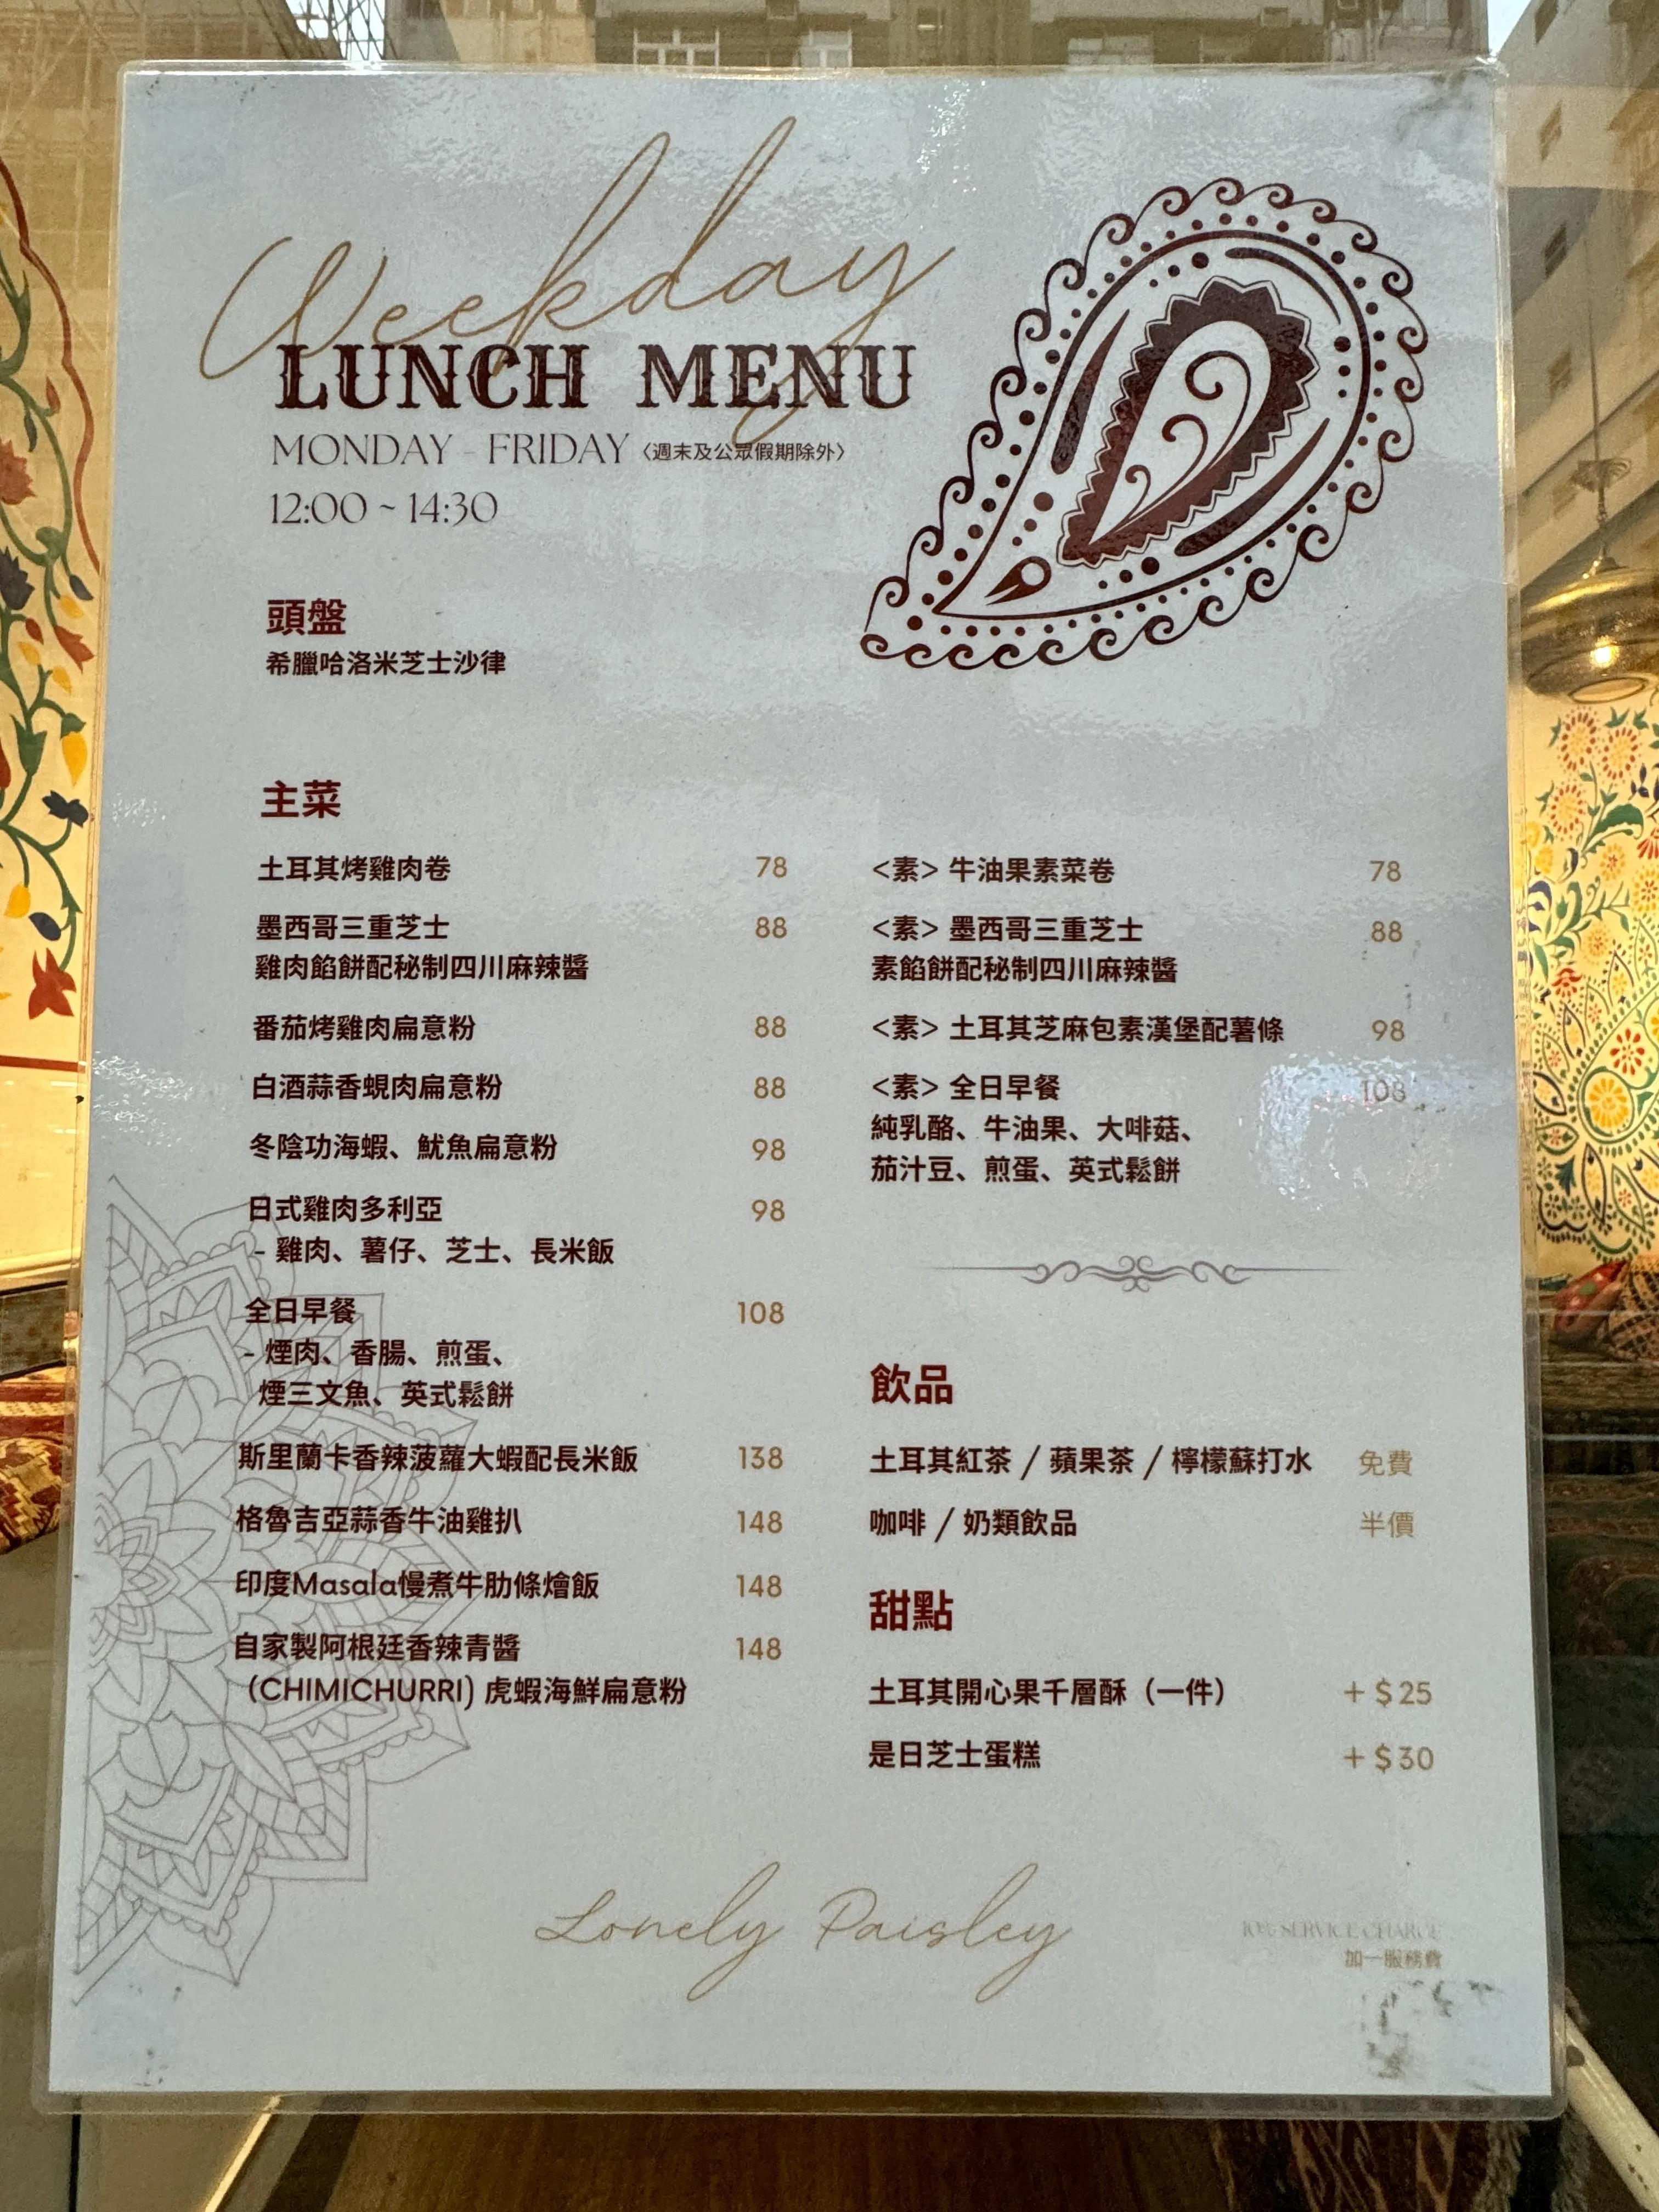 Weekday
LUNCH MENU
MONDAY - FRIDAY〈週末及公眾假期除外〉
12:00 ~ 14:30
頭盤
希臘哈洛米芝士沙律
主菜
土耳其烤雞肉卷 78
墨西哥三重芝士 88
雞肉餡餅配秘制四川麻辣醬
番茄烤雞肉扁意粉 88
白酒蒜香蜆肉扁意粉 88
冬陰功海蝦、魷魚扁意粉 98
日式雞肉多利亞 98
- 雞肉、薯仔、芝士、長米飯
全日早餐 108
- 煙肉、香腸、煎蛋、
煙三文魚、英式鬆餅
斯里蘭卡香辣菠蘿大蝦配長米飯 138
格魯吉亞蒜香牛油雞扒 148
印度Masala慢煮牛肋條燴飯 148
自家製阿根廷香辣青醬 148
(CHIMICHURRI) 虎蝦海鮮扁意粉
<素> 牛油果素菜卷 78
<素> 墨西哥三重芝士 88
素餡餅配秘制四川麻辣醬
<素> 土耳其芝麻包素漢堡配薯條 98
<素> 全日早餐 108
純乳酪、牛油果、大啡菇、
茄汁豆、煎蛋、英式鬆餅
飲品
土耳其紅茶 / 蘋果茶 / 檸檬蘇打水 免費
咖啡 / 奶類飲品 半價
甜點
土耳其開心果千層酥（一件） + $25
是日芝士蛋糕 + $30
Lonely Paisley
10% SERVICE CHARGE
加一服務費